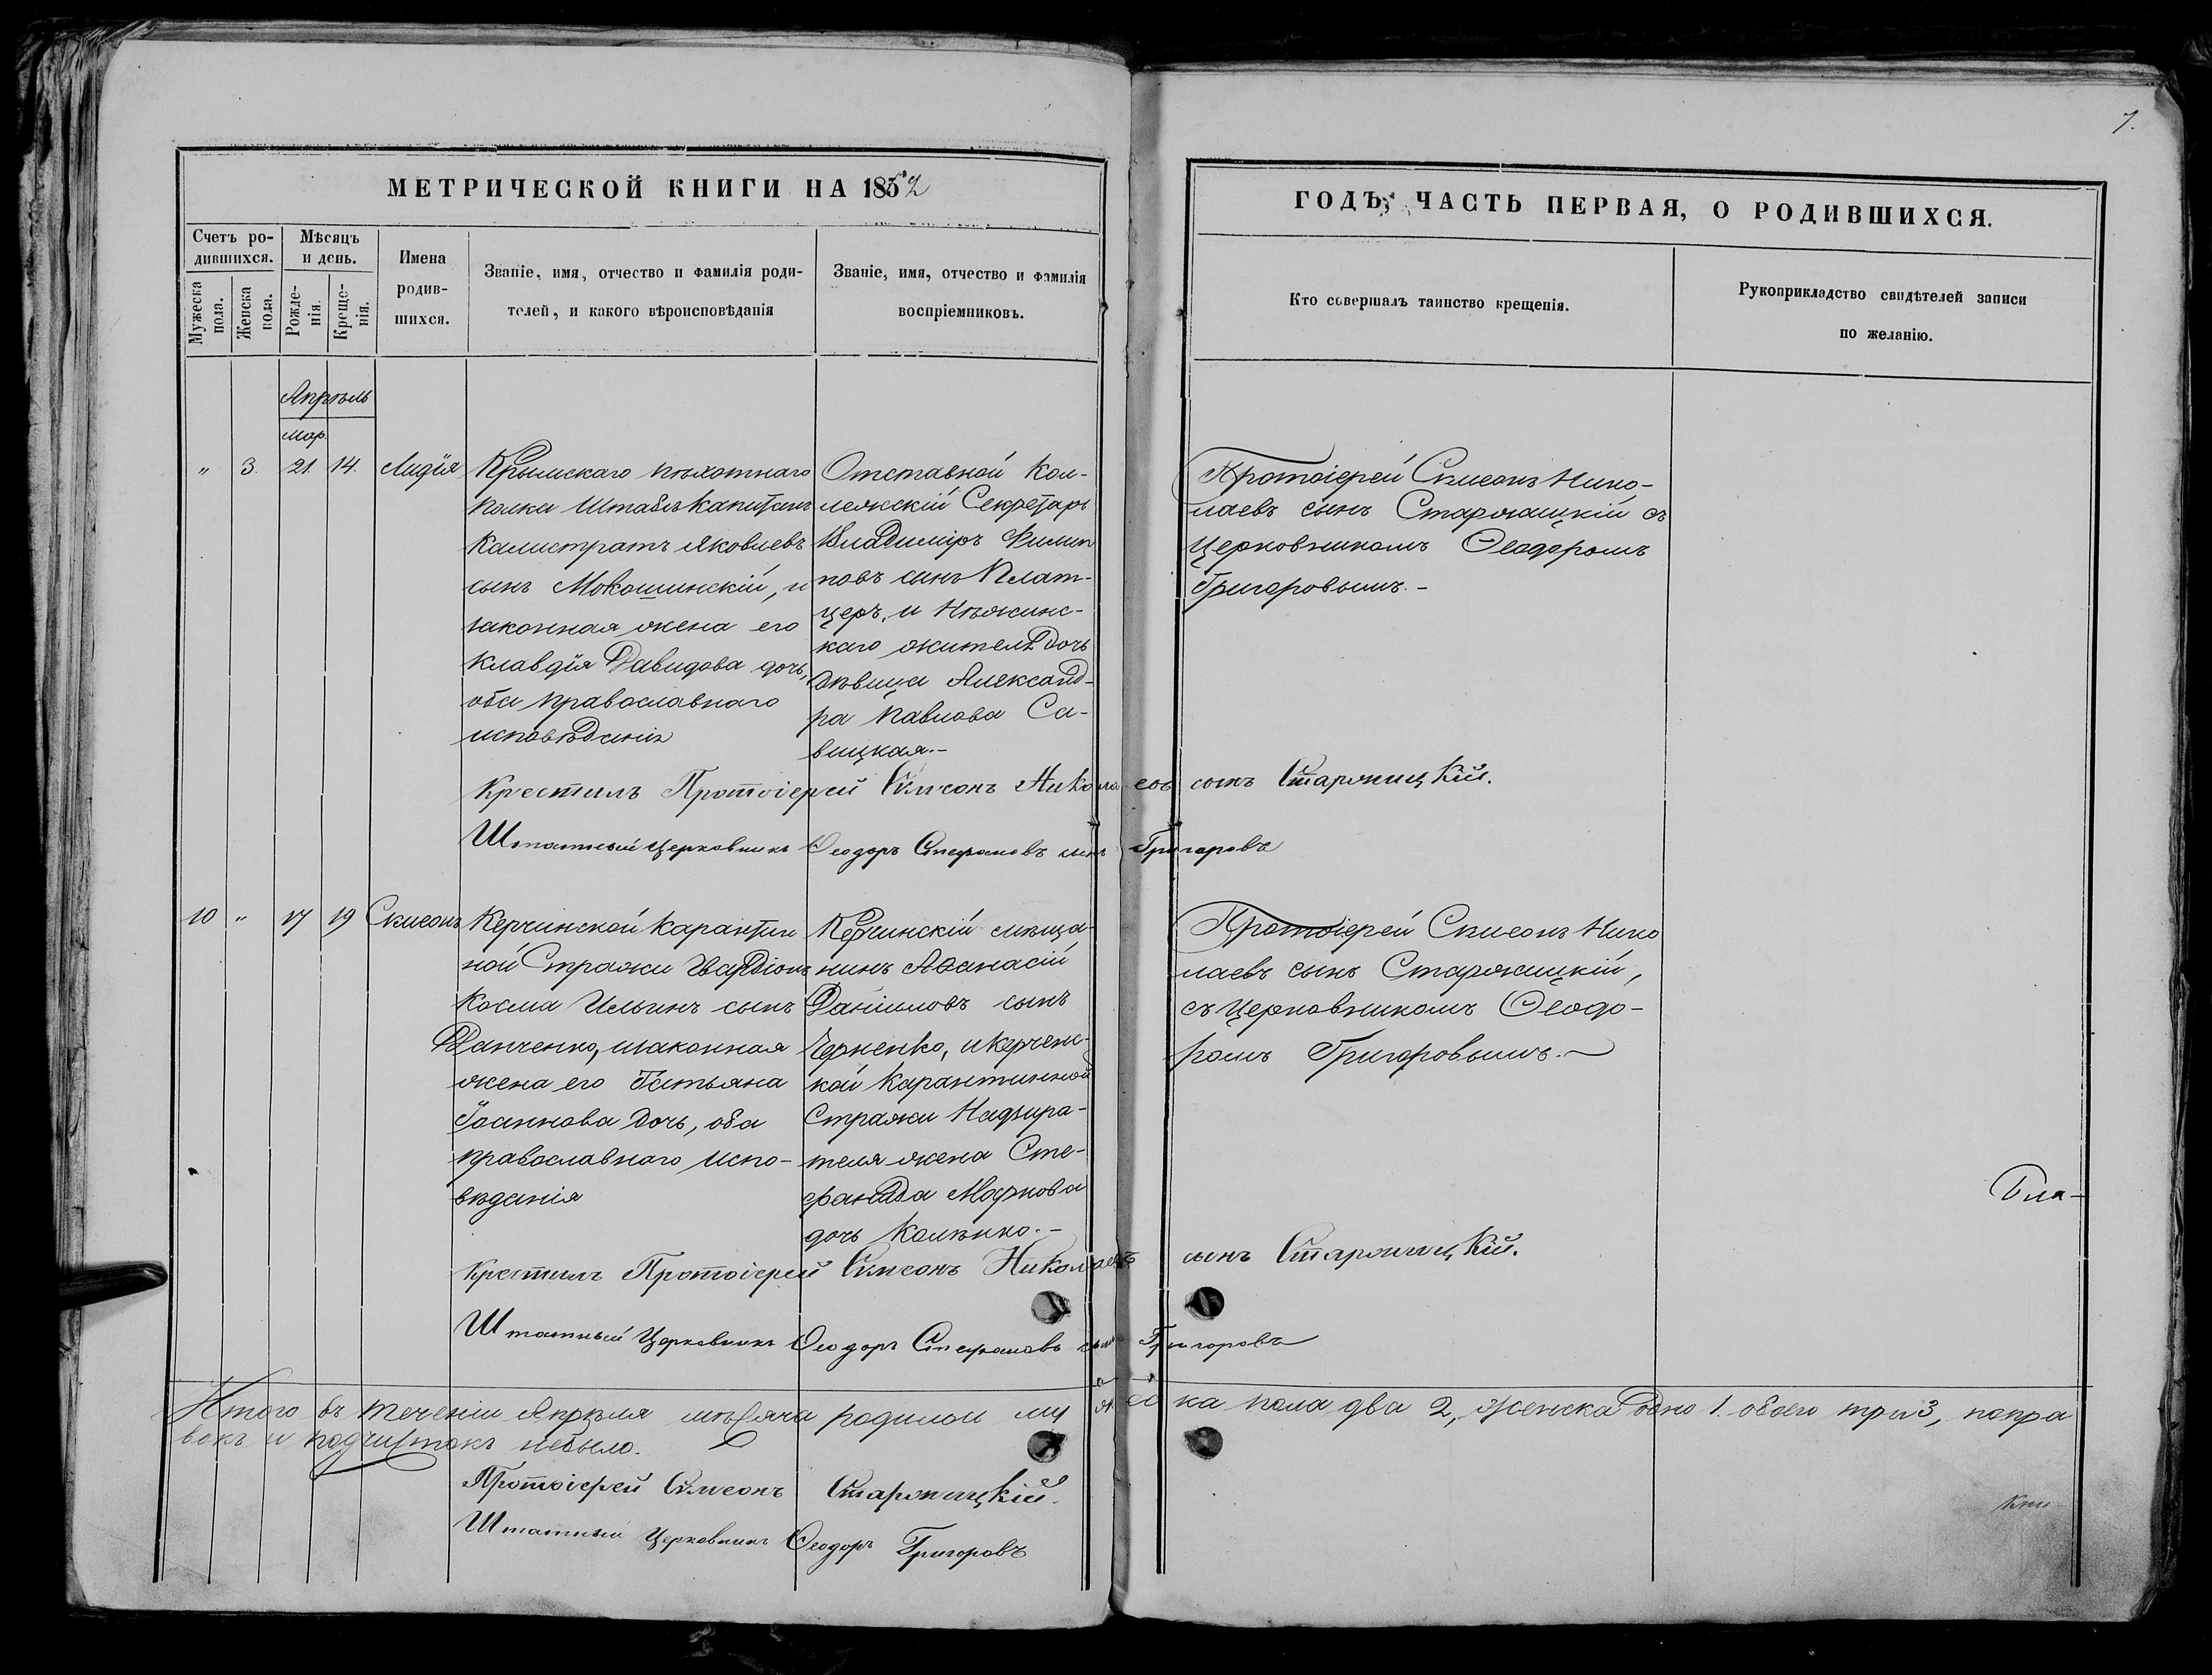 7.
МЕТРИЧЕСКОЙ КНИГИ НА 1852
ГОДЪ, ЧАСТЬ ПЕРВАЯ, О РОДИВШИХСЯ.
Счетъ ро-
дившихся.
Мужеска пола.
Женска пола.
Мѣсяцъ
и день.
Рожде-
нія.
Креще-
нія.
Имена
родив-
шихся.
Званіе, имя, отчество и фамилія роди-
телей, и какого вѣроисповѣданія
Званіе, имя, отчество и фамилія
воспріемниковъ.
Кто совершалъ таинство крещенія.
Рукоприкладство свидѣтелей записи
по желанію.
Апрѣль
мар.
" 3. 21. 14. Лидія
Крымскаго пѣхотнаго
полка Штабсъ Капитанъ
Калистратъ Яковлевъ
сынъ Мокошинскій, и
законная жена его
Клавдія Давидова дочь,
оба православнаго
исповѣданія
Отставной Кол-
лежскій Секретарь
Владиміръ Филип
повъ сынъ Плат-
церъ, и Нѣжинс-
каго жителя дочь
дѣвица Александ-
ра Павлова Са-
вицкая.-
Протоіерей Сѵмеонъ Нико-
лаевъ сынъ Старжицкій съ
Церковникомъ Ѳеодоромъ
Григоровымъ.-
Крестилъ Протоіерей Сѵмеонъ Николаевъ сынъ Старжицкій.
Штатный Церковникъ Ѳеодоръ Стефановъ сынъ Григоровъ
10 " 17 19 Сѵмеонъ
Керчинской Карантин
ной Стражи Гвардіонъ
Косма Ильинъ сынъ
Данченко, изаконная
жена его Татьяна
Іоаннова дочь, оба
православнаго испо-
вѣданія
Керчинскій мѣща-
нинъ Аѳанасій
Даніиловъ сынъ
Черненко, и Керченс-
кой Карантинной
Стражи Надзира-
теля жена Сте-
фанида Маркова
дочь Колѣнко.-
Протоіерей Сѵмеонъ Нико
лаевъ сынъ Старжицкій,
съ Церковникомъ Ѳеодо-
ромъ Григоровымъ.-
Бла-
Крестилъ Протоіерей Сѵмеонъ Николаевъ сынъ Старжицкій.
Штатный Церковникъ Ѳеодоръ Стефановъ сынъ Григоровъ
Итого въ теченіи Апрѣля мѣсяца родилось мужеска пола два 2, женска одно 1. обоего три 3, попра
вокъ и подчистокъ небыло.
Протоіерей Сѵмеонъ Старжицкій.
Штатный Церковникъ Ѳеодоръ Григоровъ